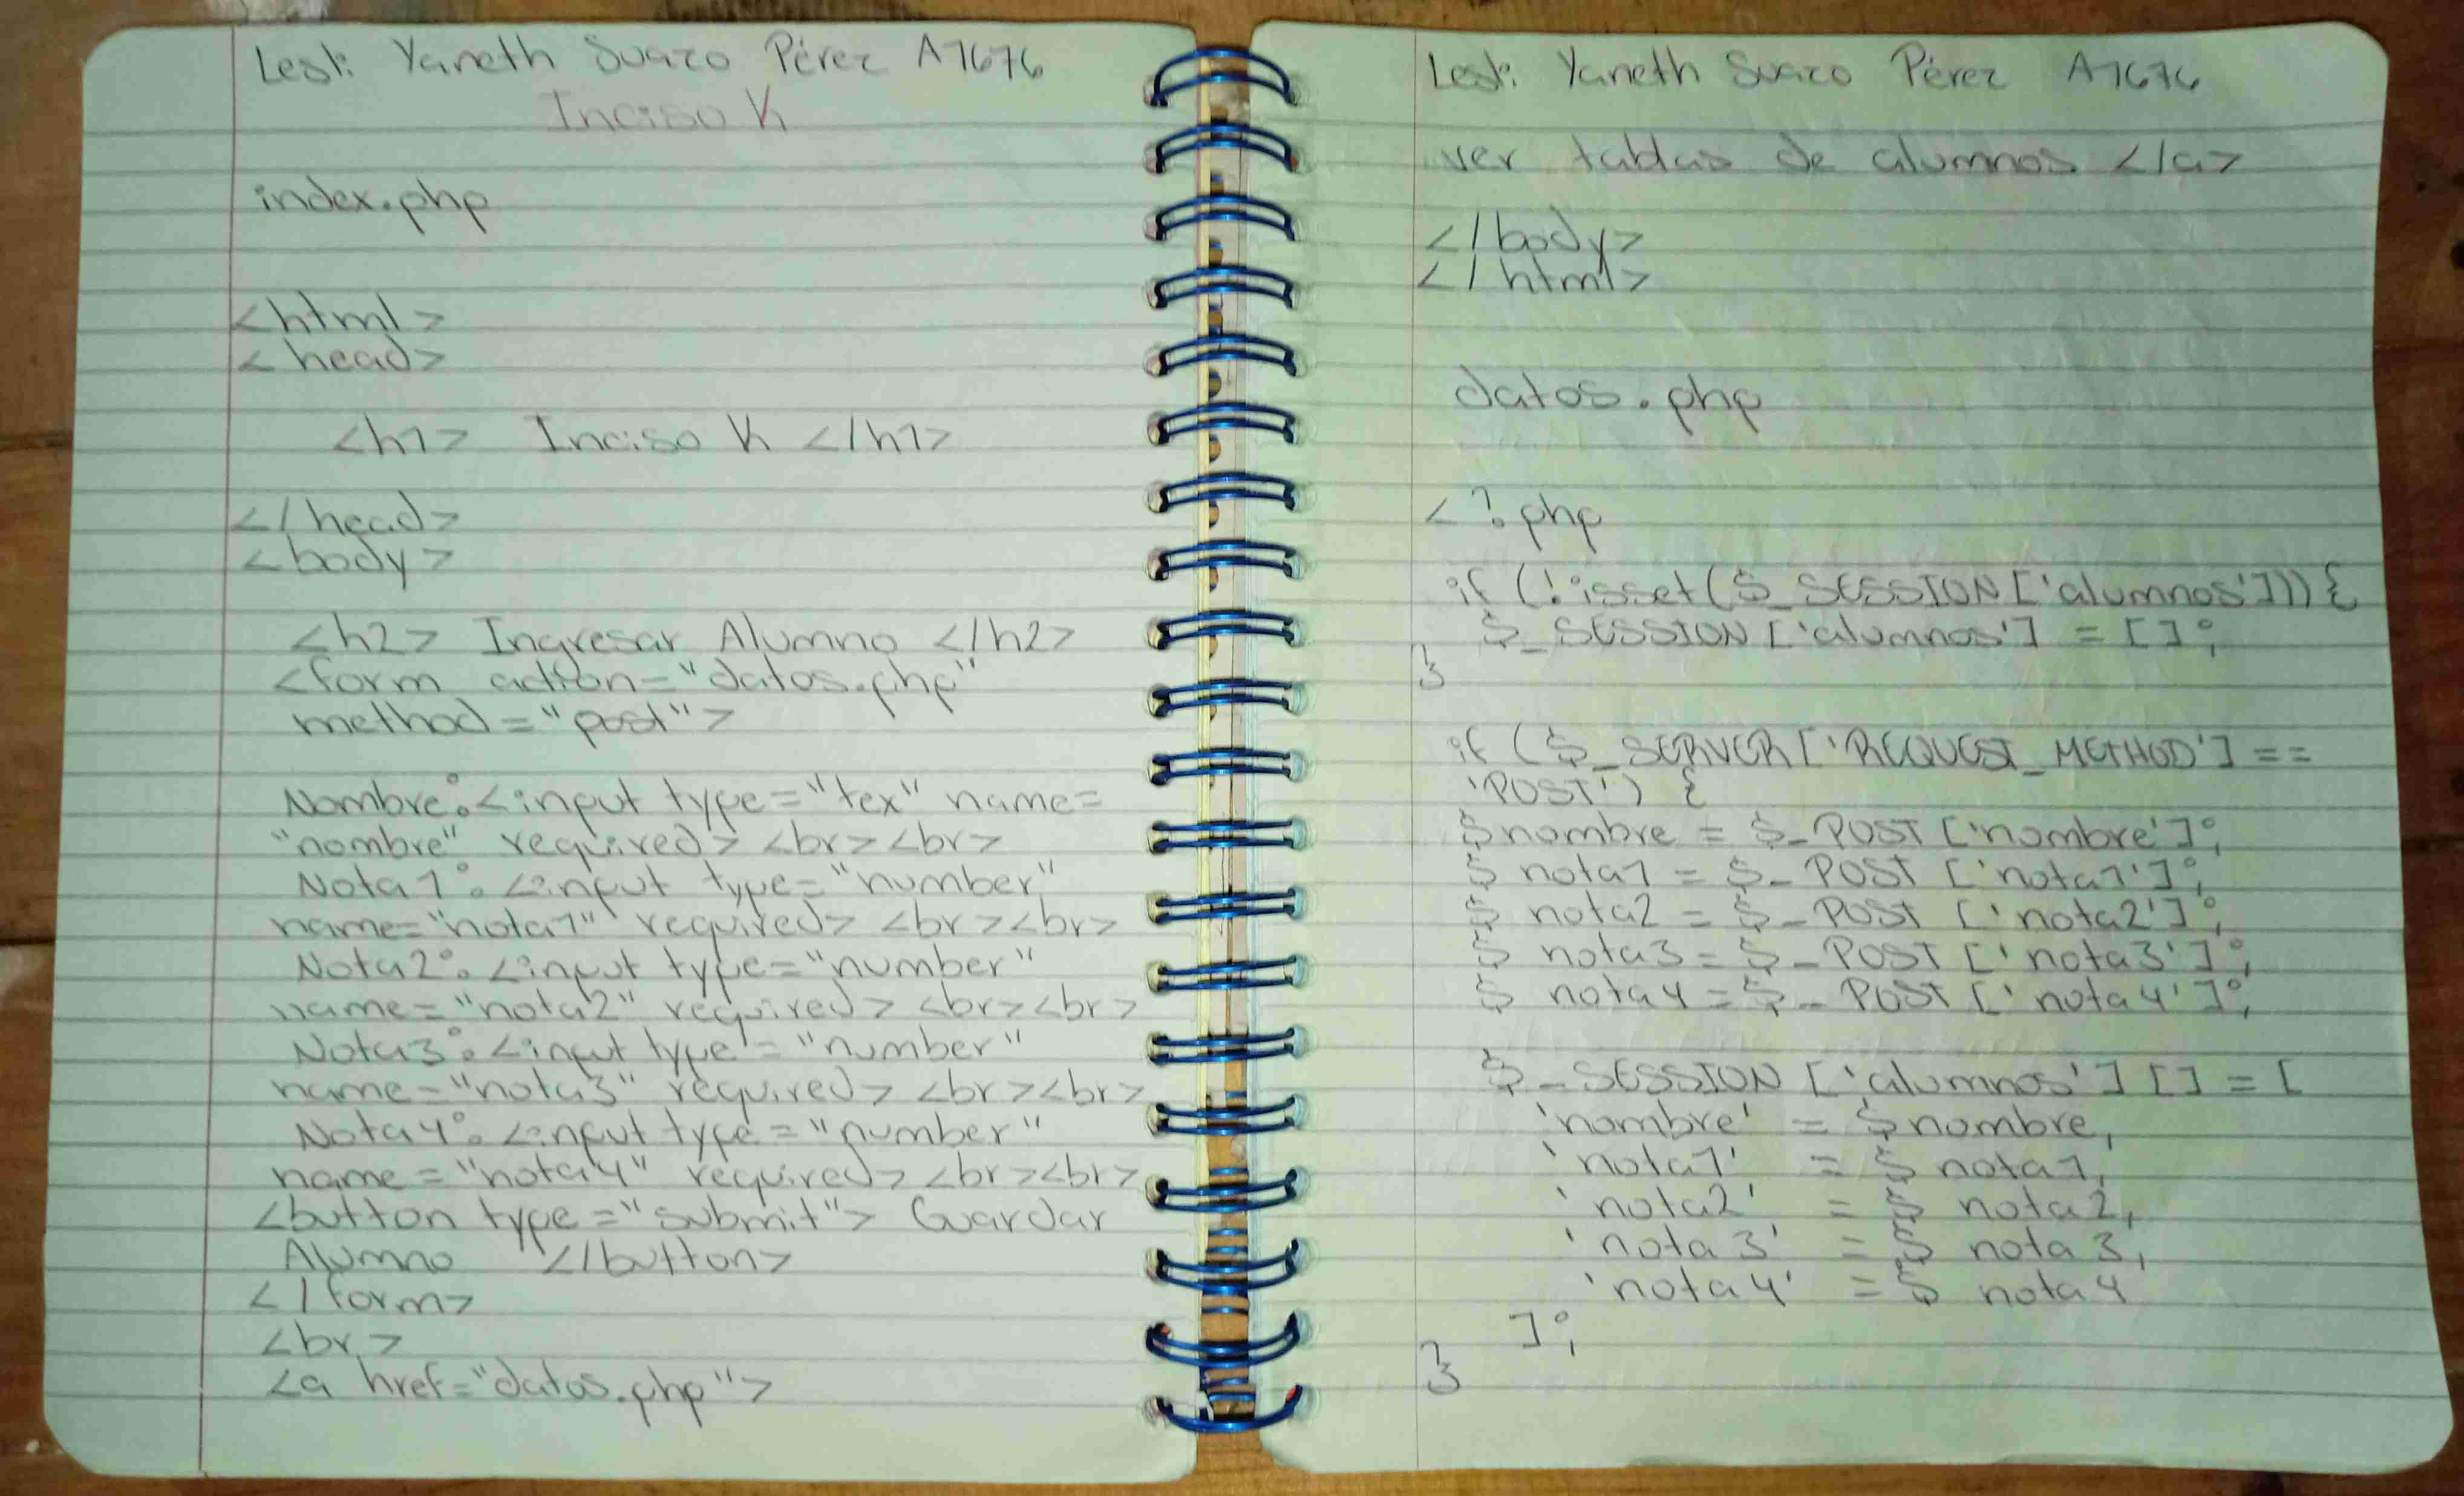 Lesli Yaneth Suazo Pérez A7676
Inciso K
index.php
<html>
<head>
<h1> Inciso K </h1>
</head>
<body>
<h2> Ingresar Alumno </h2>
<form action="datos.php"
method="post">
Nombre:<input type="tex" name=
"nombre" required> <br><br>
Nota1: <input type="number"
name="nota1" required> <br><br>
Nota2: <input type="number"
name="nota2" required> <br><br>
Nota3: <input type="number"
name="nota3" required> <br><br>
Nota4: <input type="number"
name="nota4" required> <br><br>
<button type="submit"> Guardar
Alumno </button>
</form>
<br>
<a href="datos.php">
Lesli Yaneth Suazo Pérez A7676
ver tablas de alumnos </a>
</body>
</html>
datos.php
<?php
if (!isset($_SESSION['alumnos'])) {
$_SESSION['alumnos'] = [];
}
if ($_SERVER['REQUEST_METHOD'] ==
'POST') {
$nombre = $_POST ['nombre'];
$ nota1 = $_POST ['nota1'];
$ nota2 = $_POST ['nota2'];
$ nota3 = $_POST ['nota3'];
$ nota4 = $_POST ['nota4'];
$_SESSION ['alumnos'] [] = [
'nombre' = $nombre,
'nota1' = $ nota1,
'nota2' = $ nota2,
'nota3' = $ nota3,
'nota4' = $ nota4
];
}